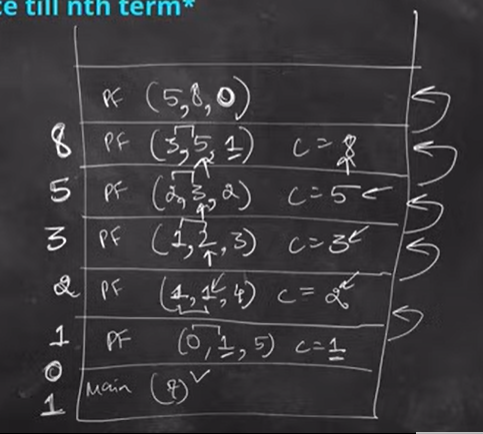 te till nth term*
PF (5,8,0)
8 PF (3,5,1) c = 8
5 PF (2,3,2) c = 5
3 PF (1,2,3) c = 3
2 PF (1,1,4) c = 2
1 PF (0,1,5) c = 1
0
1 Main (7)